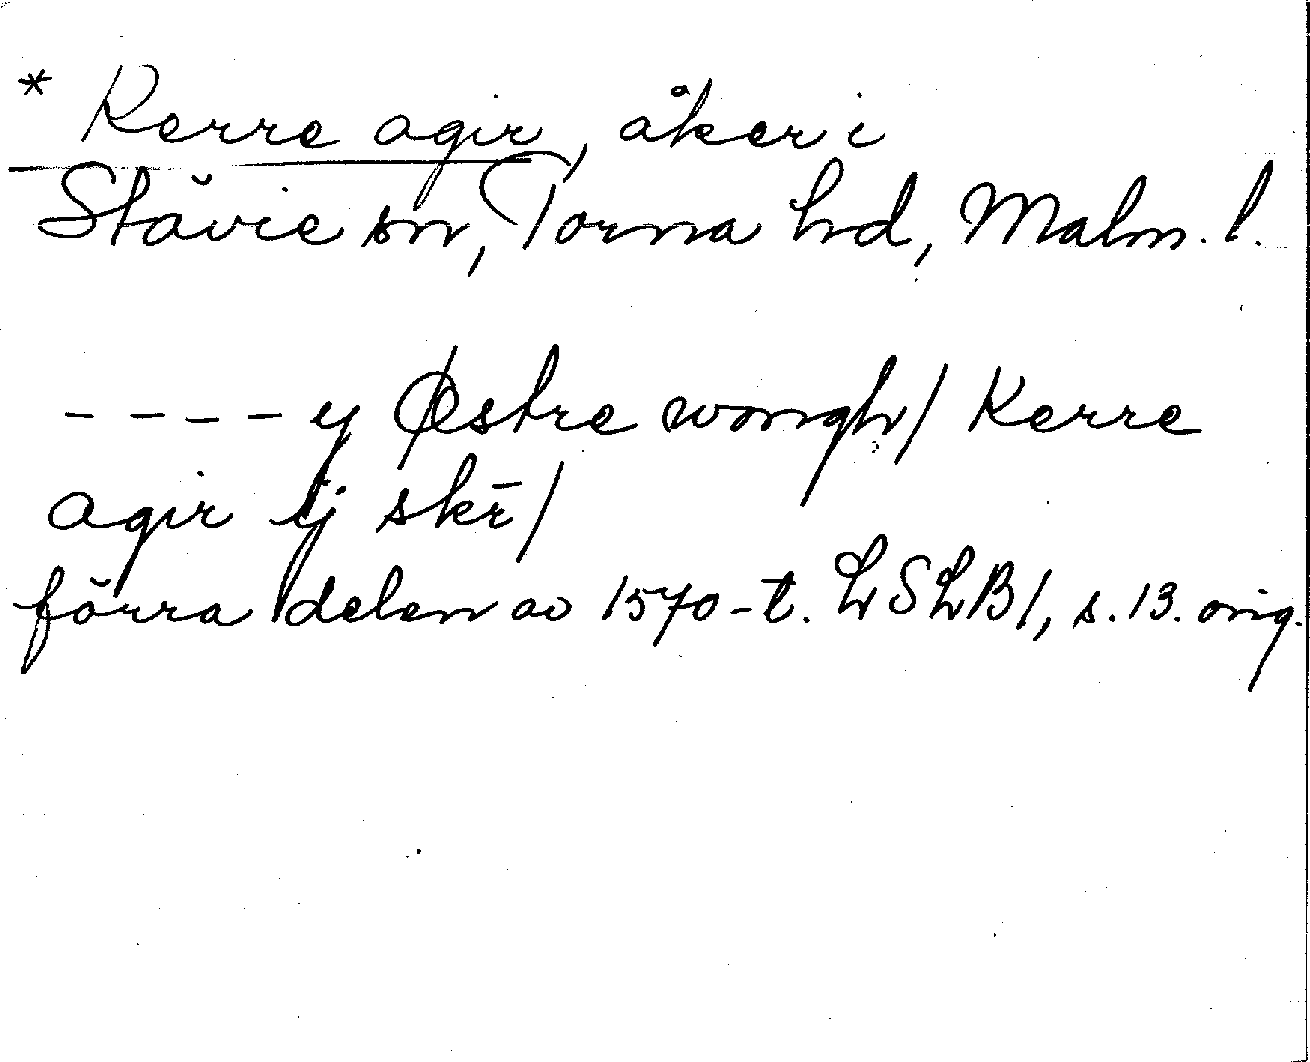 * Kerre agir, åker i
Stävie sn, Torna hd, Malm. l.
- - - - y Østre wongh / Kerre
agir ij skr̄ /
förra delen av 1570-t. LSLB1, s. 13. orig.